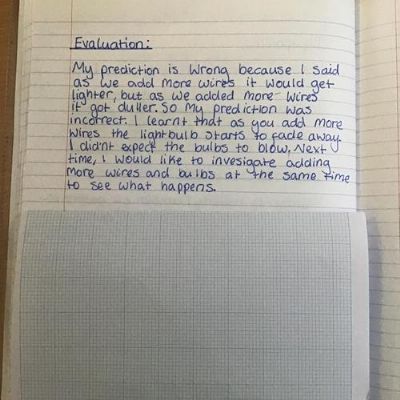 Evaluation:
My prediction is wrong because I said
as we add more wires it would get
lighter, but as we added more wires
it got duller. So my prediction was
incorrect. I learnt that as you add more
wires the lightbulb starts to fade away
I didnt expect the bulbs to blow. Next
time, I would like to invesigate adding
more wires and bulbs at the same time
to see what happens.